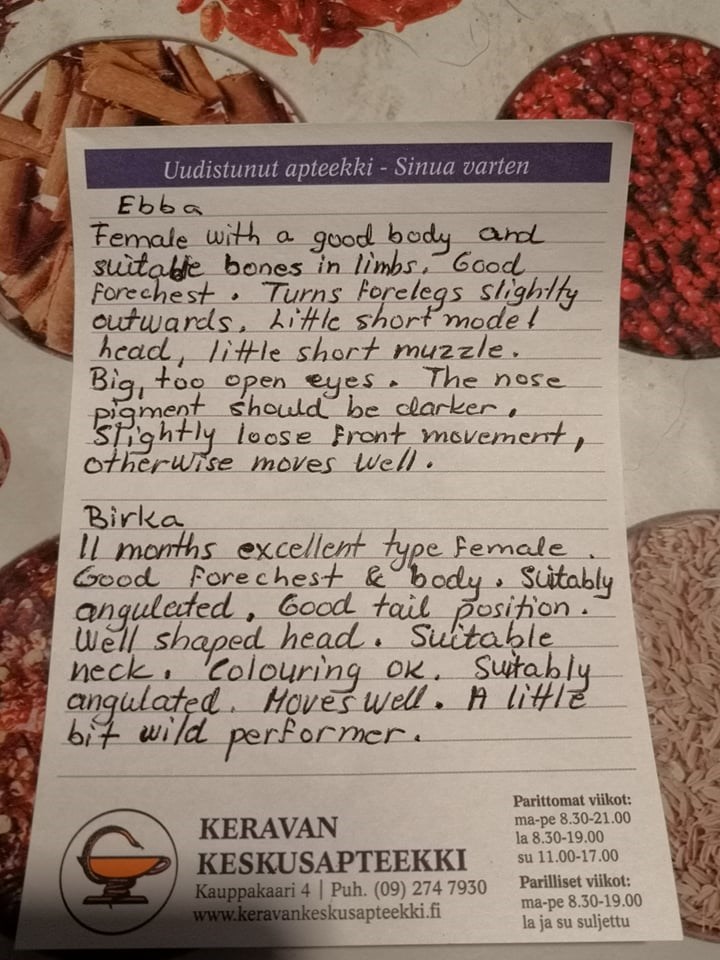 Uudistunut apteekki - Sinua varten
Ebba
Female with a good body and
suitable bones in limbs. Good
forechest. Turns forelegs slightly
outwards. Little short model
head, little short muzzle.
Big, too open eyes. The nose
pigment should be darker.
Slightly loose front movement,
otherwise moves well.
Birka
11 months excellent type female.
Good forechest & body. Suitably
angulated, Good tail position.
Well shaped head. Suitable
neck. Colouring ok. Suitably
angulated. Moves well. A little
bit wild performer.
KERAVAN
KESKUSAPTEEKKI
Kauppakaari 4 | Puh. (09) 274 7930
www.keravankeskusapteekki.fi
Parittomat viikot:
ma-pe 8.30-21.00
la 8.30-19.00
su 11.00-17.00
Parilliset viikot:
ma-pe 8.30-19.00
la ja su suljettu